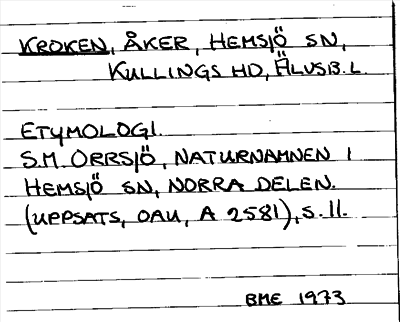 KROKEN, ÅKER, HEMSJÖ SN,
KULLINGS HD, ÄLVSB. L.
ETYMOLOGI.
S.M. ORRSJÖ, NATURNAMNEN I
HEMSJÖ SN, NORRA DELEN.
(UPPSATS, OAU, A 2581), S. 11.
BME 1973